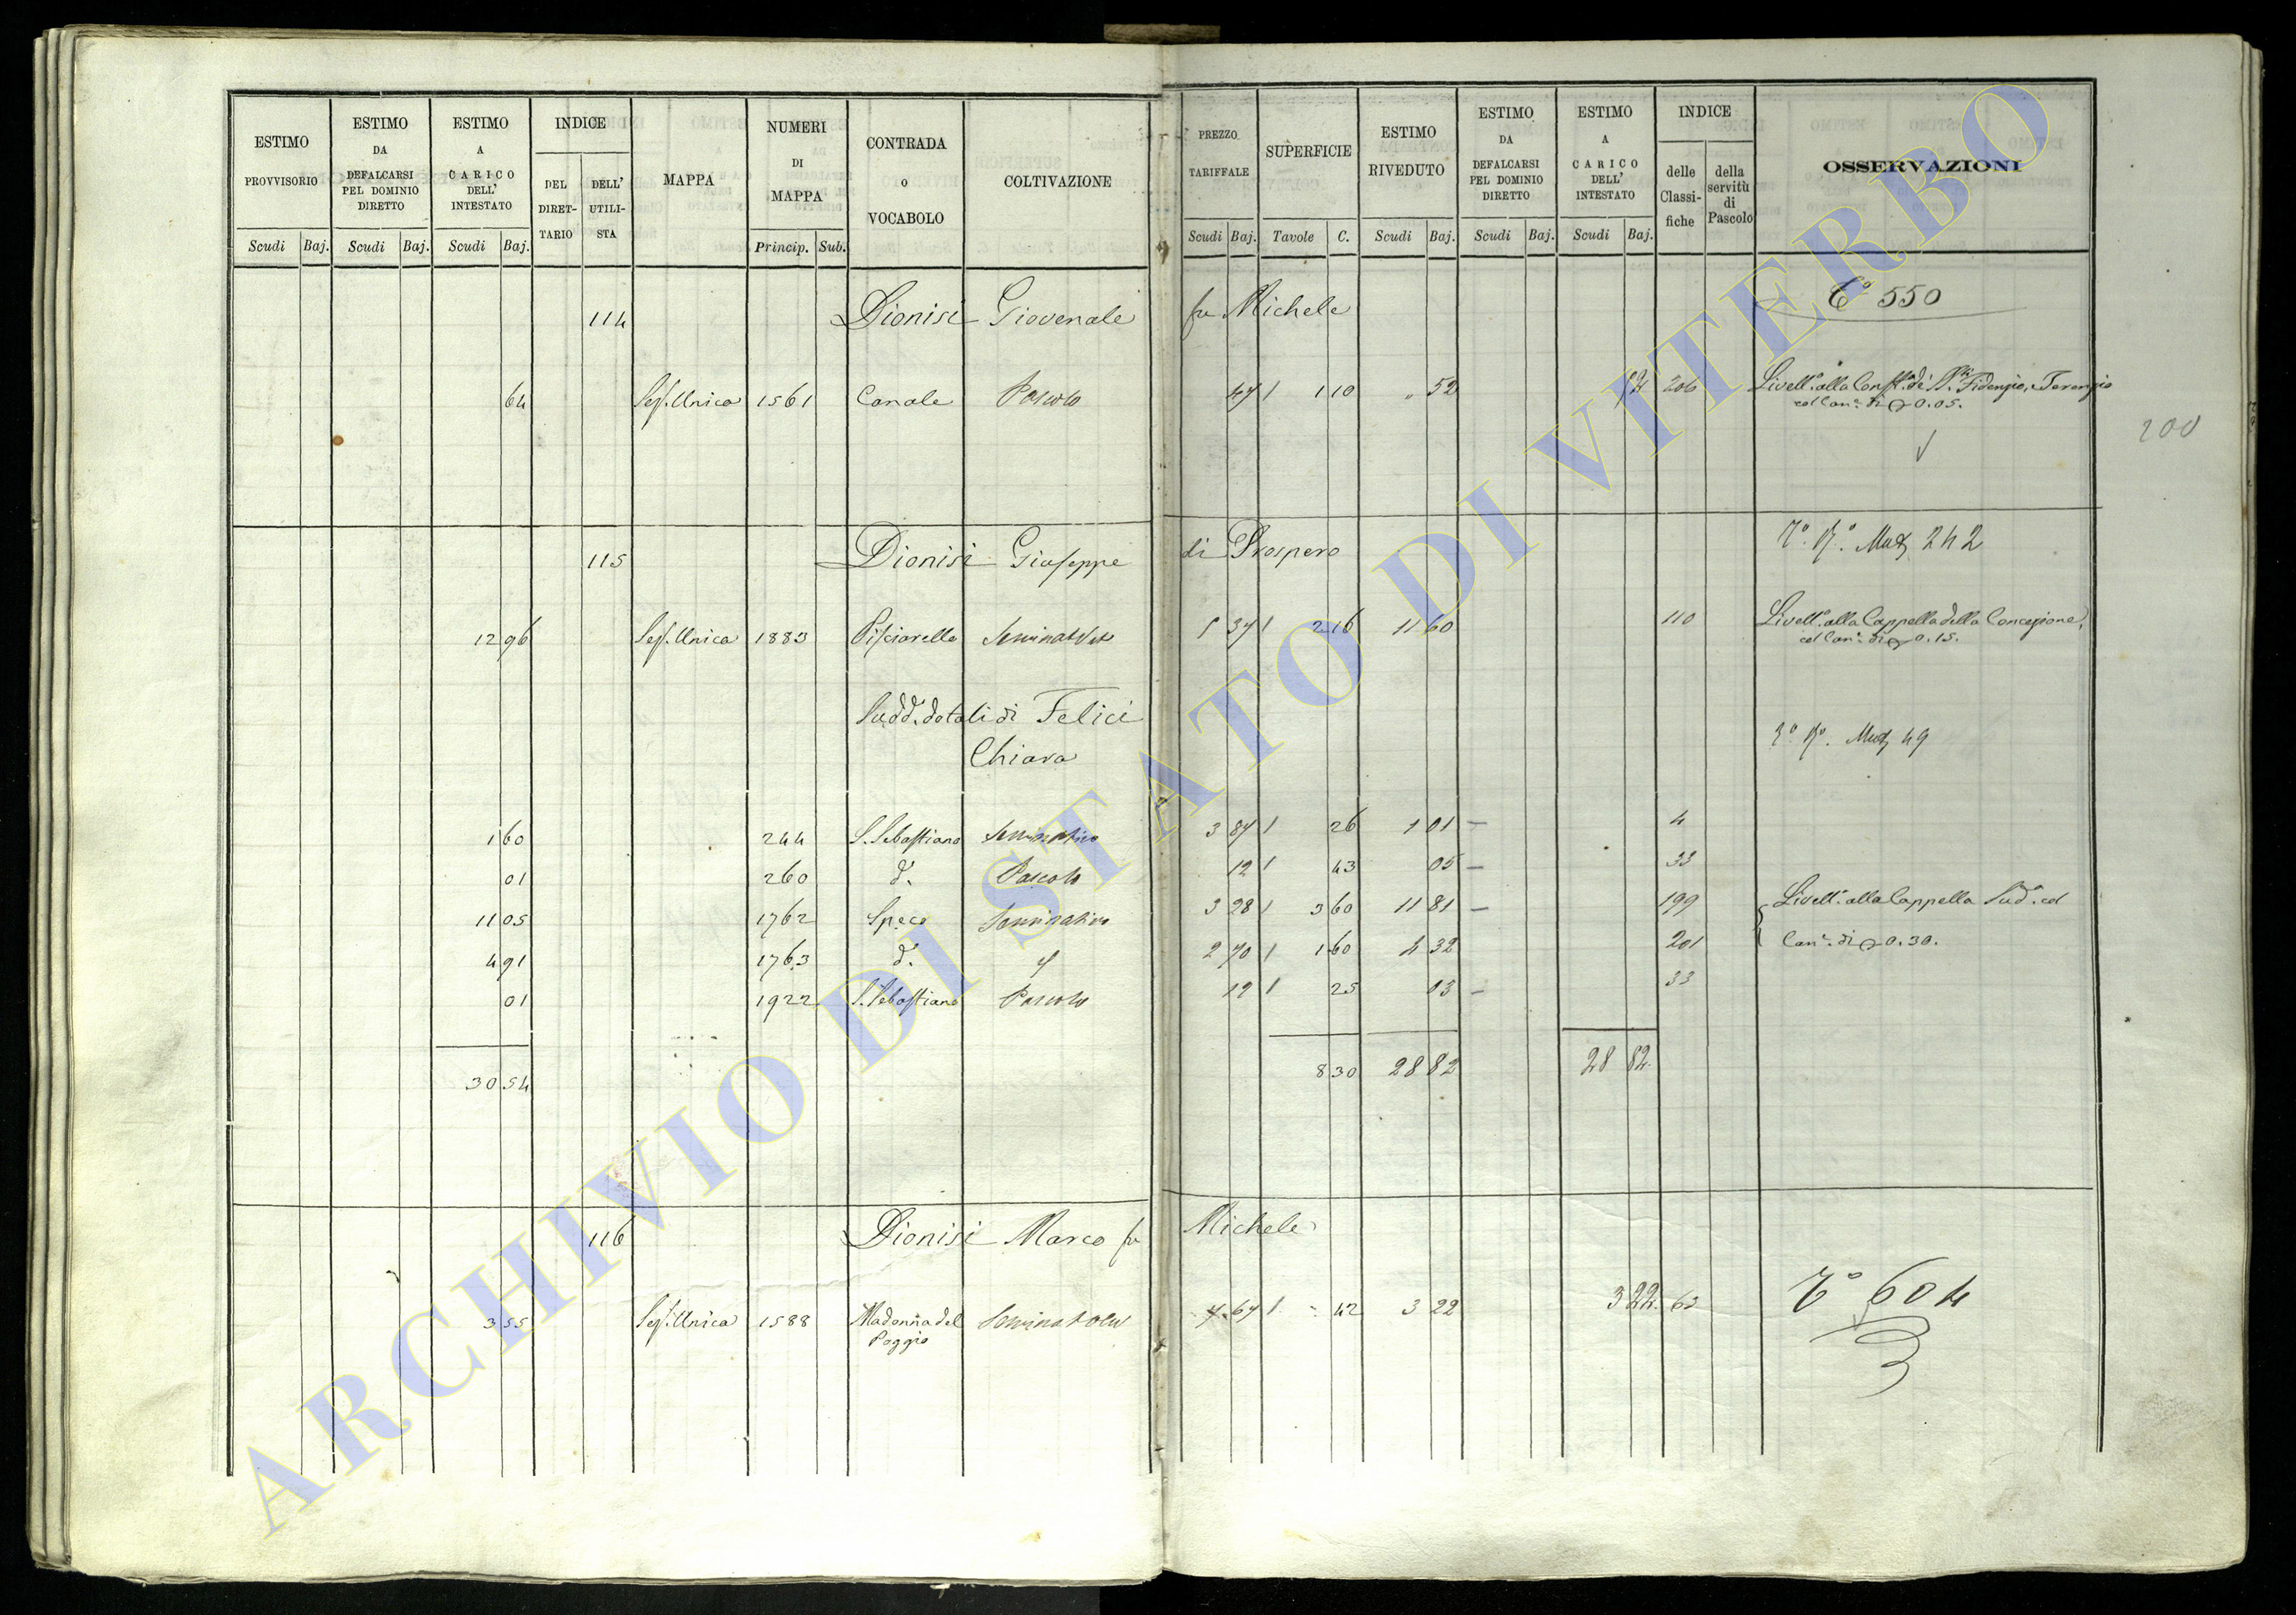 ESTIMO PROVVISORIO
ESTIMO DA DEFALCARSI PEL DOMINIO DIRETTO
ESTIMO A CARICO DELL' INTESTATO
INDICE
DEL DIRET-TARIO
DELL' UTILI-STA
MAPPA
NUMERI DI MAPPA
CONTRADA O VOCABOLO
COLTIVAZIONE
PREZZO TARIFFALE
SUPERFICIE
ESTIMO RIVEDUTO
ESTIMO DA DEFALCARSI PEL DOMINIO DIRETTO
ESTIMO A CARICO DELL' INTESTATO
INDICE
delle Classi-fiche
della servitù di Pascolo
OSSERVAZIONI
Scudi Baj. Scudi Baj. Scudi Baj. Princip. Sub. Scudi Baj. Tavole C. Scudi Baj. Scudi Baj. Scudi Baj.
114 Dionisi Giovenale fu Michele 550
64 Sez. Unica 1561 Canale Pascolo 47 1 10 52 52 206 Livell.o alla Conf.a di S. Fidenzio, e Terenzio
col Can.e di 0.05.
200
115 Dionisi Giuseppe di Prospero 242
12 96 Sez. Unica 1883 Pisciarello 5 37 2 16 11 60 110 Livell.o alla Cappella della Concezione,
col Can.e di 0.15.
Sudd.i dotali di Felici
Chiara 49
1 60 244 S. Sebastiano Seminativo 3 87 26 1 01 4
01 260 d.o Pascolo 12 43 05 33
11 05 1762 Speco Seminativo 3 28 3 60 11 81 199 Livell.o alla Cappella Sud.a col
4 91 1763 d.o 2 70 1 60 4 32 201 Can.e di 0.30.
01 1922 S. Sebastiano Pascolo 12 25 03 33
30 54 8 30 28 82 28 82
116 Dionisi Marco fu Michele
3 55 Sez. Unica 1588 Madonna del Poggio 7 67 42 3 22 3 22 63 604
ARCHIVIO DI STATO DI VITERBO